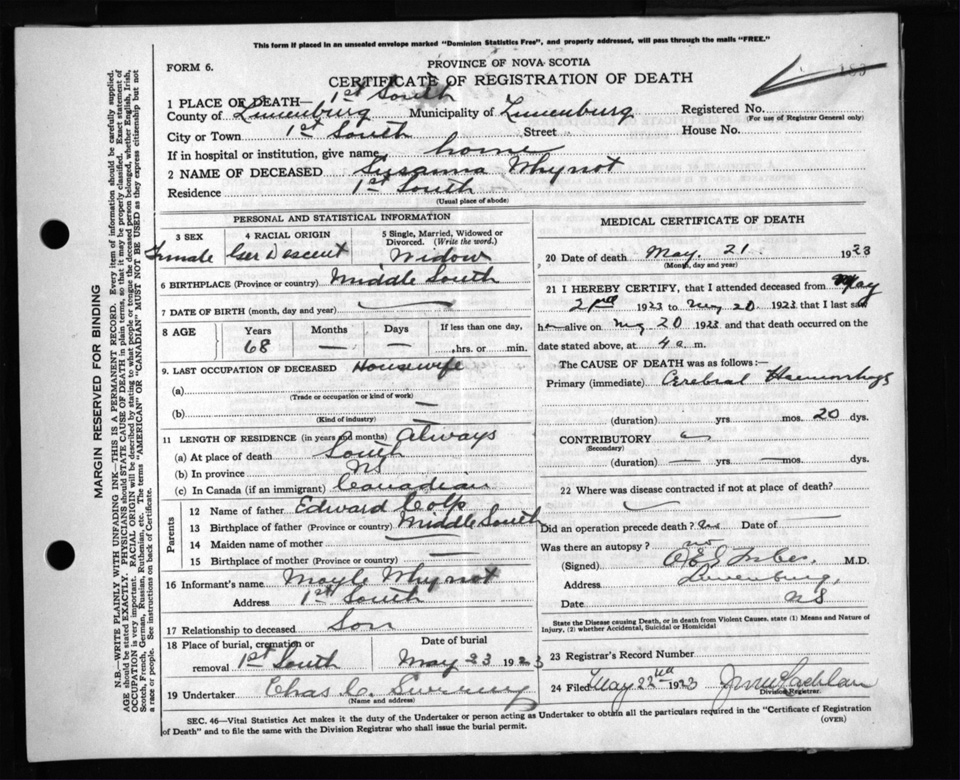 This form if placed in an unsealed envelope marked "Dominion Statistics Free", and properly addressed, will pass through the mails "FREE."
FORM 6.
PROVINCE OF NOVA SCOTIA
183
CERTIFICATE OF REGISTRATION OF DEATH
1 PLACE OF DEATH— 1st South
County of Lunenburg Municipality of Lunenburg Registered No.
(For use of Registrar General only)
City or Town 1st South Street House No.
If in hospital or institution, give name home
2 NAME OF DECEASED Susanna Whynot
Residence 1st South
(Usual place of abode)
PERSONAL AND STATISTICAL INFORMATION
3 SEX 4 RACIAL ORIGIN 5 Single, Married, Widowed or Divorced. (Write the word.)
Female Ger Descent Widow
6 BIRTHPLACE (Province or country) Middle South
7 DATE OF BIRTH (month, day and year) —
8 AGE Years Months Days If less than one day,
68 — — hrs. or min.
9. LAST OCCUPATION OF DECEASED Housewife
(a)
(Trade or occupation or kind of work)
(b) —
(Kind of industry)
11 LENGTH OF RESIDENCE (in years and months) Always
(a) At place of death South
(b) In province NS
(c) In Canada (if an immigrant) Canadian
Parents
12 Name of father Edward Colp
13 Birthplace of father (Province or country) Middle South
14 Maiden name of mother —
15 Birthplace of mother (Province or country) —
16 Informant's name Whynot
Address 1st South
17 Relationship to deceased Son
18 Place of burial, cremation or removal 1st South Date of burial May 23 1923
19 Undertaker Chas C. Sweeny
(Name and address)
MEDICAL CERTIFICATE OF DEATH
20 Date of death May. 21. 1923
(Month, day and year)
21 I HEREBY CERTIFY, that I attended deceased from May
1923 to May 20 1923 that I last saw
h alive on May 20 1923 and that death occurred on the
date stated above, at 4 a. m.
The CAUSE OF DEATH was as follows:—
Primary (immediate) Cerebral Haemorhage
(duration) yrs — mos. 20 dys.
CONTRIBUTORY
(Secondary)
(duration) — yrs — mos — dys.
22 Where was disease contracted if not at place of death?
Did an operation precede death? no Date of —
Was there an autopsy? no
(Signed) M.D.
Address Lunenburg,
Date NS
State the Disease causing Death, or in death from Violent Causes, state (1) Means and Nature of Injury, (2) whether Accidental, Suicidal or Homicidal
23 Registrar's Record Number
24 Filed May 22nd 1923
Division Registrar.
SEC. 46—Vital Statistics Act makes it the duty of the Undertaker or person acting as Undertaker to obtain all the particulars required in the "Certificate of Registration of Death" and to file the same with the Division Registrar who shall issue the burial permit.
(OVER)
MARGIN RESERVED FOR BINDING
N.B.—WRITE PLAINLY WITH UNFADING INK—THIS IS A PERMANENT RECORD. Every item of information should be carefully supplied.
AGE should be stated EXACTLY. PHYSICIANS should STATE CAUSE OF DEATH in plain terms, so that it may be properly classified. Exact statement of
OCCUPATION is very important. RACIAL ORIGIN will be described by stating to what people or tongue the deceased person belonged, whether English, Irish,
Scotch, French, German, Russian, Ruthenian, etc. The terms "AMERICAN" OR "CANADIAN" MUST NOT BE USED as they express citizenship but not
a race or people. See instructions on back of Certificate.